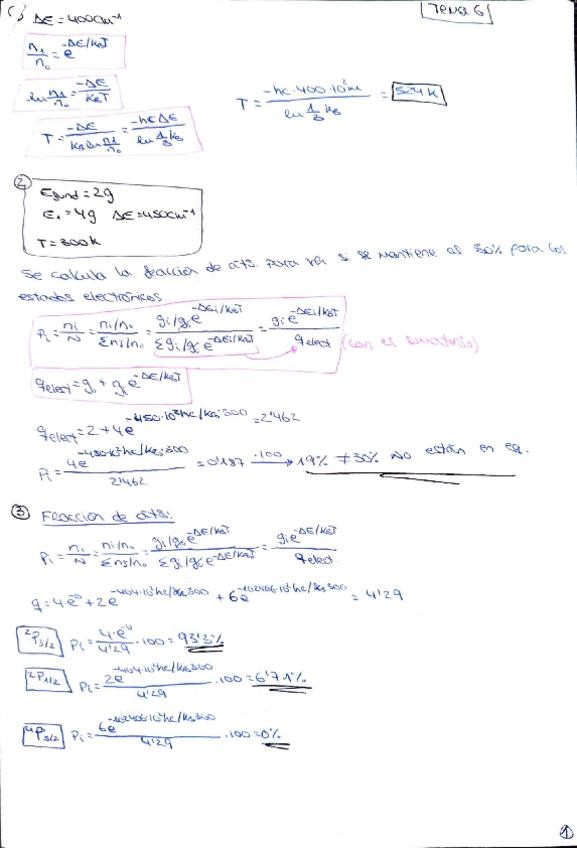 Tema 6
1) ΔE = 400cm⁻¹
n₁/n₀ = e^(-ΔE/k_BT)
ln n₁/n₀ = -ΔE/k_BT
T = -ΔE/(k_B ln n₁/n₀) = -hcΔE/(ln 1/3 k_B)
T = -hc·400·10²m/(ln 1/3 k_B) = 524K
②
E_fund = 2g
E₁ = 4g ΔE = 450cm⁻¹
T = 300K
Se calcula la fracción de áts. para ver si se mantiene al 30% para los
estados electrónicos
Pᵢ = nᵢ/N = nᵢ/n₀/Σnᵢ/n₀ = gᵢ/g₀e^(-ΔEᵢ/k_BT)/Σgᵢ/g₀e^(-ΔEᵢ/k_BT) = gᵢe^(-ΔEᵢ/k_BT)/q_elect (con el sumatorio)
q_elect = g₀ + g₁e^(-ΔE/k_BT)
q_elect = 2 + 4e^(-450·10²hc/k_B·300) = 2'462
Pᵢ = 4e^(-450·10²hc/k_B·300)/2'462 = 0'187 ·100→ 19% ≠ 30% No están en eq.
③ Fracción de áts:
Pᵢ = nᵢ/N = nᵢ/n₀/Σnᵢ/n₀ = gᵢ/g₀e^(-ΔE/k_BT)/Σgᵢ/g₀e^(-ΔE/k_BT) = gᵢe^(-ΔE/k_BT)/q_elect
q = 4e^(-0) + 2e^(-404·10²hc/k_B300) + 6e^(-102406·10²hc/k_B300) = 4'29
²P₃/₂ Pᵢ = 4·e⁻⁰/4'29 ·100 = 93'3%
²P₁/₂ Pᵢ = 2e^(-404·10²hc/k_B·300)/4'29 ·100 = 6'71%
⁴P₅/₂ Pᵢ = 6e^(-102406·10²hc/k_B300)/4'29 ·100 = 0%
①